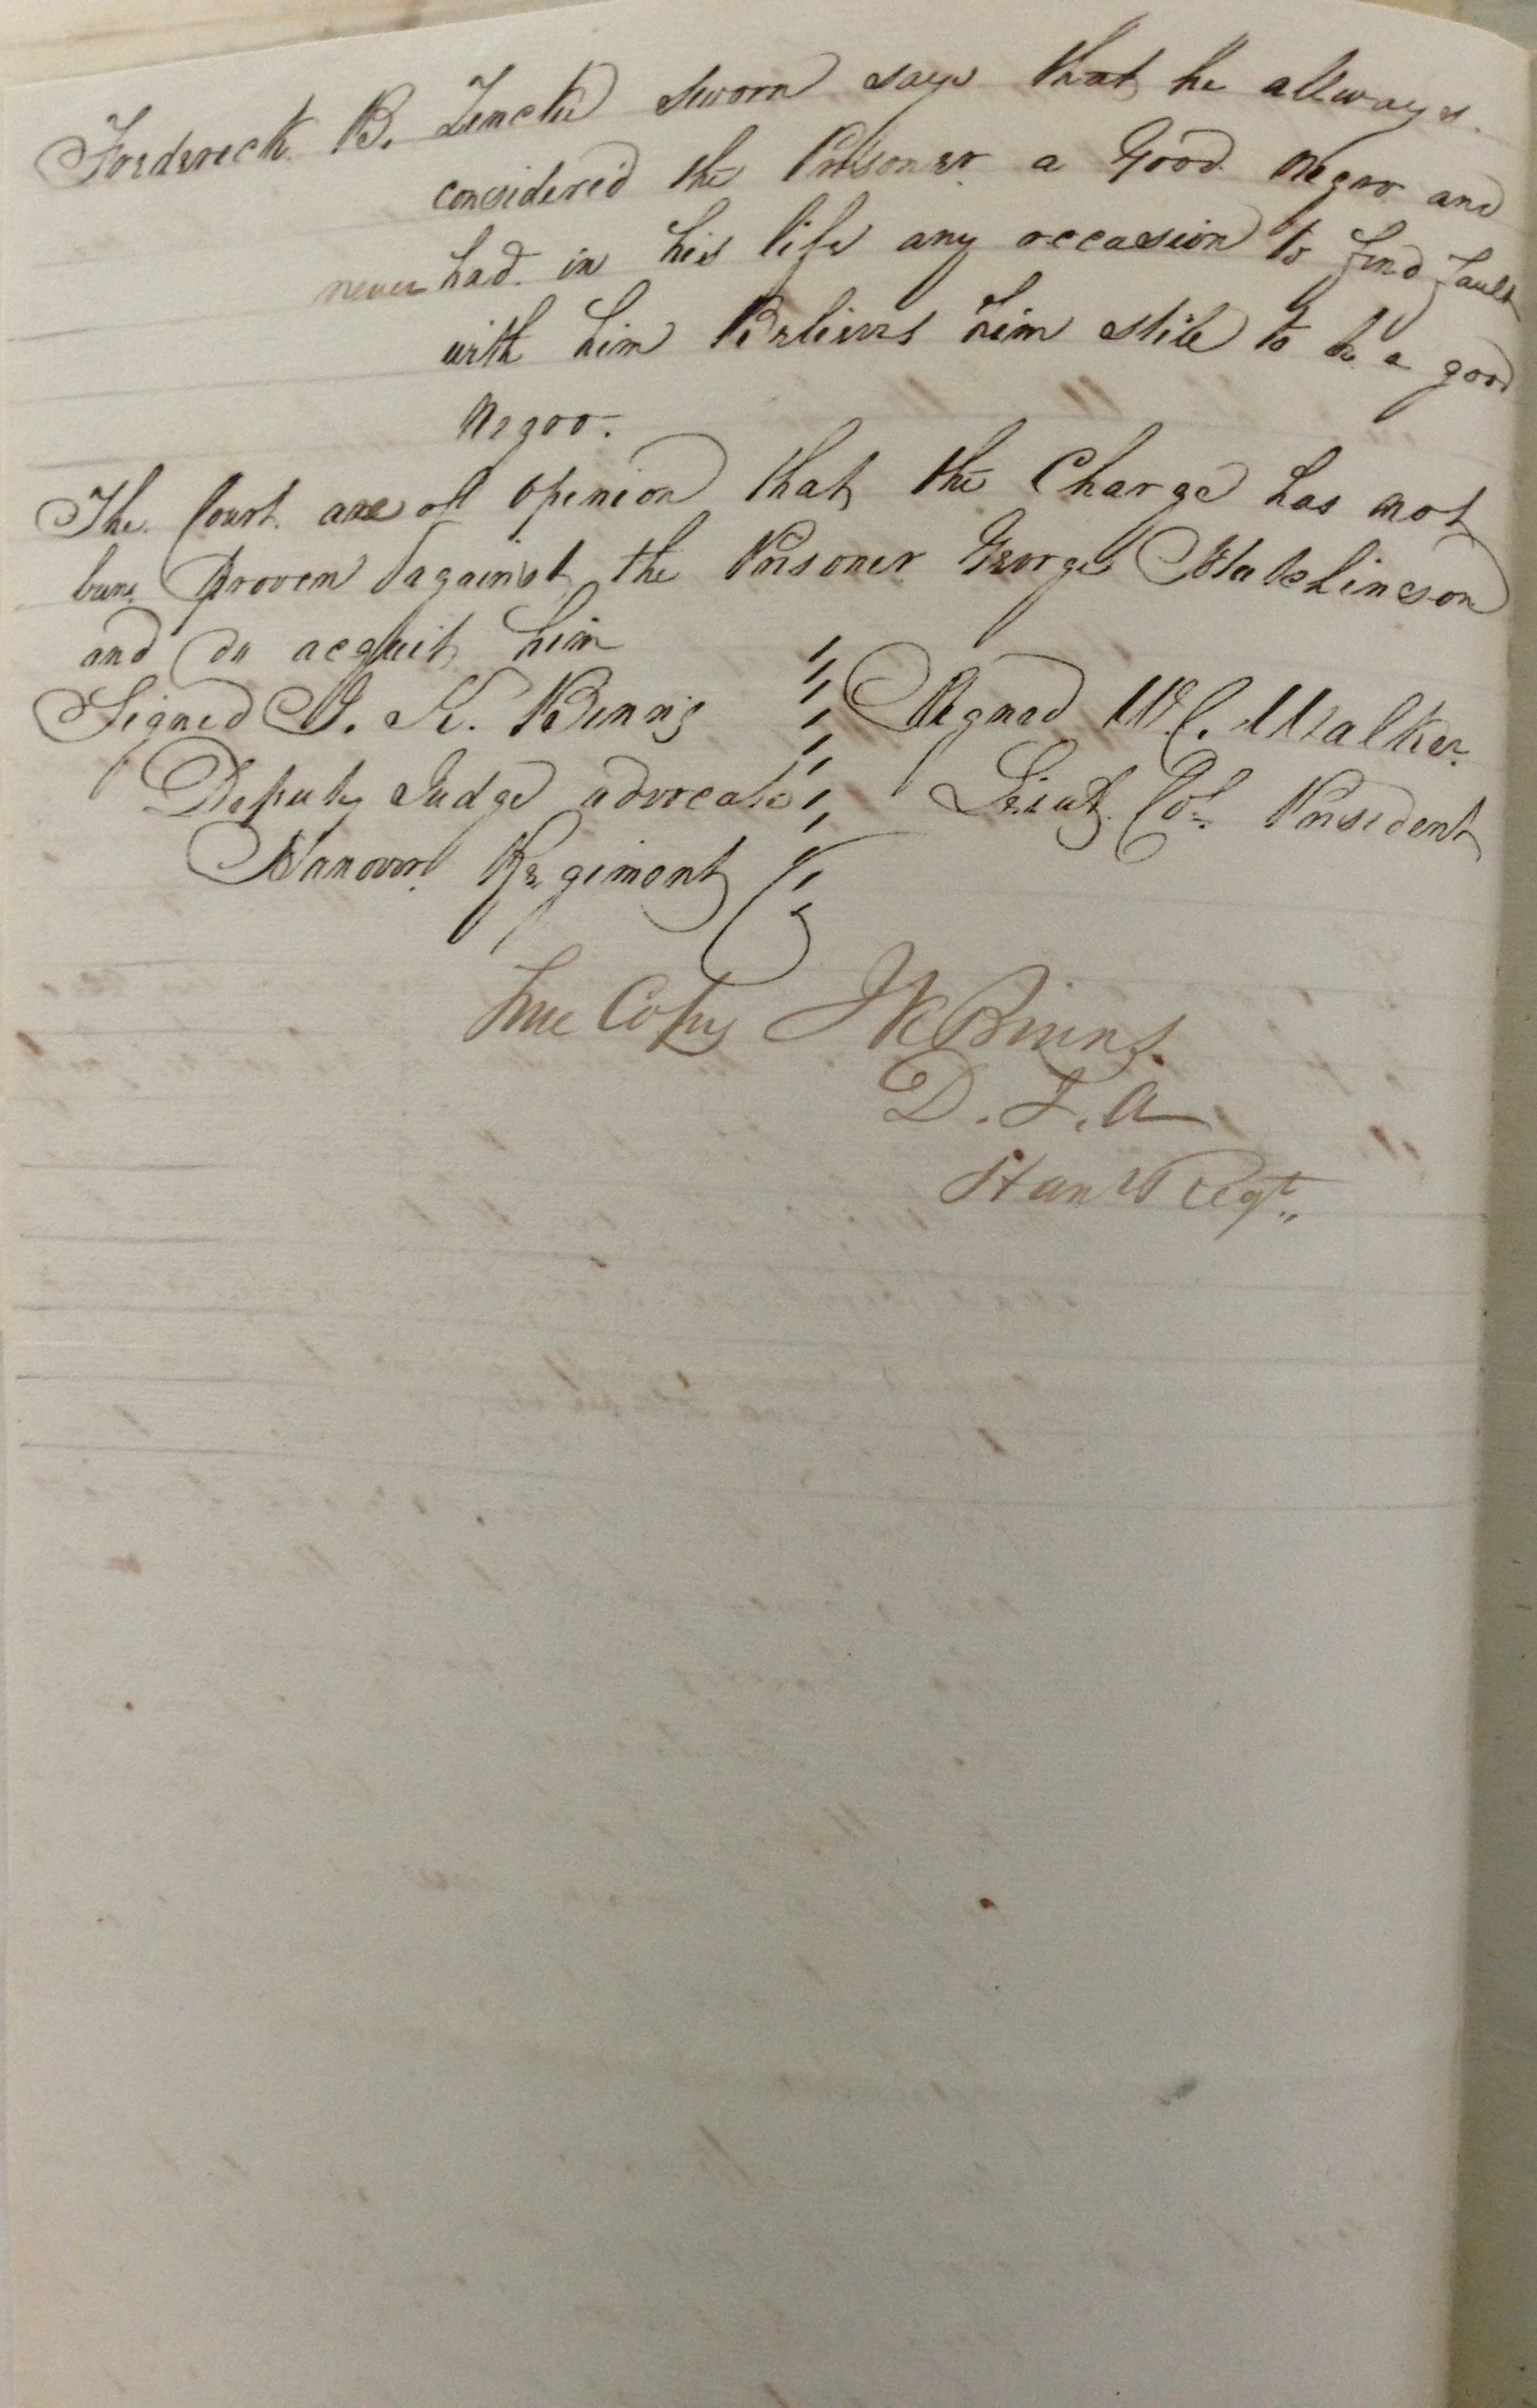 Frederick B. Zincke sworn says that he allways
considered the Prisoner a Good Negro and
never had in his life any occasion to find fault
with him Believes him still to be a good
Negro.
The Court are of opinion that the Charge has not
been proven against the Prisoner George Hutchinson
and do acquit him
Signed J. K. Binns Signed W. C. Walker
Deputy Judge advocate Lieut. Col. President
Hanover Regiment
True Copy J K Binns.
D. J. A
Hanr Regt